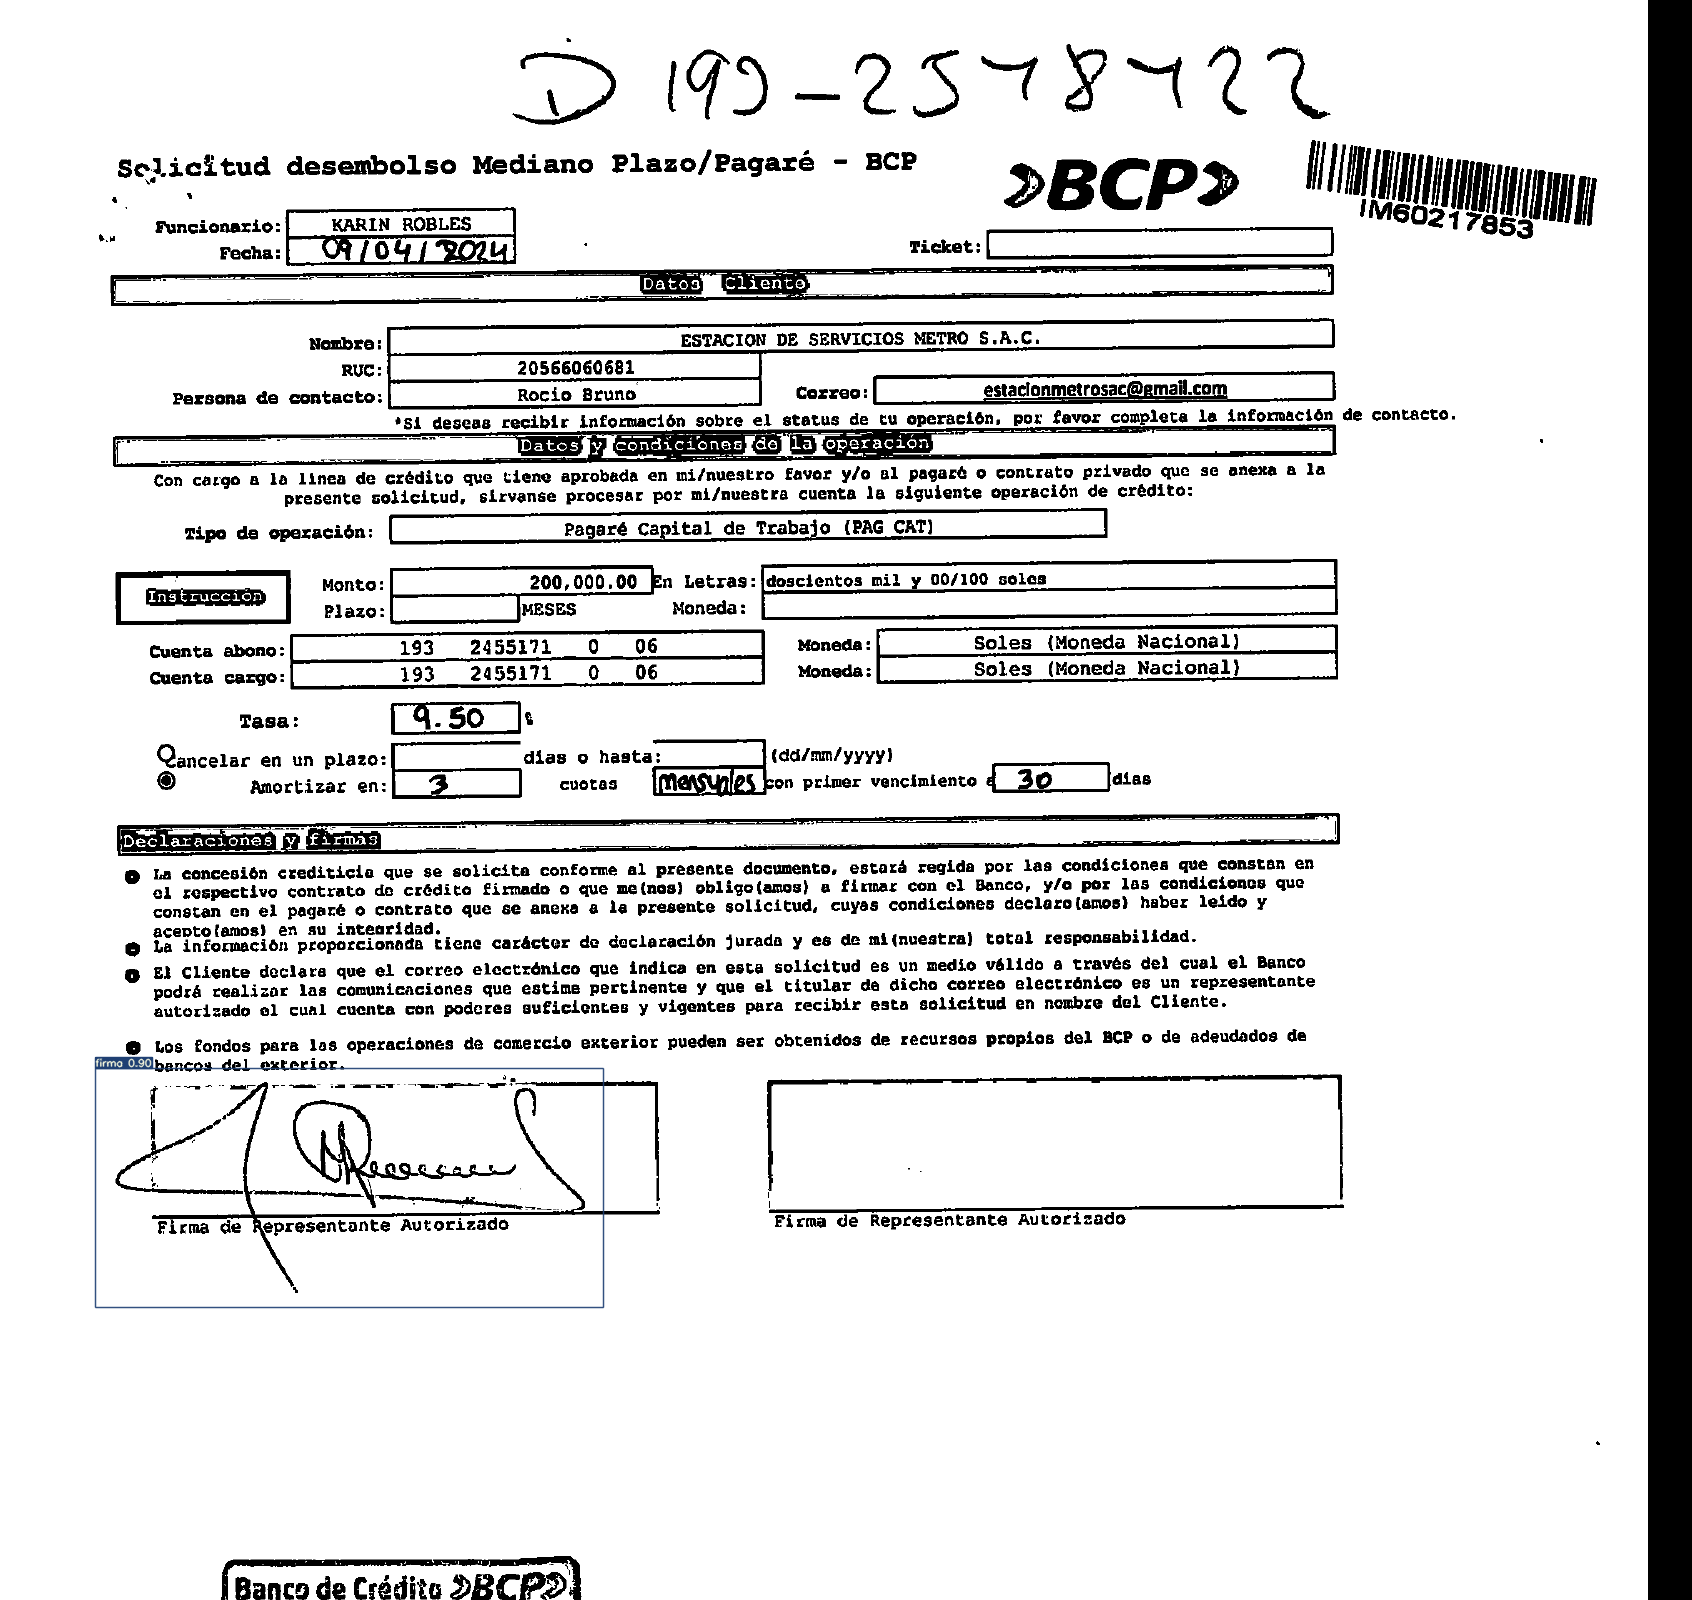 Solicitud desembolso Mediano Plazo/Pagaré - BCP
BCP
IM60217853
Funcionario: KARIN ROBLES
Fecha: 09/04/2024
Ticket:
Datos Cliente
Nombre: ESTACION DE SERVICIOS METRO S.A.C.
RUC: 20566060681
Persona de contacto: Rocio Bruno Correo: estacionmetrosac@gmail.com
*Si deseas recibir información sobre el status de tu operación, por favor completa la información de contacto.
Datos y condiciones de la operación
Con cargo a la linea de crédito que tiene aprobada en mi/nuestro favor y/o al pagaré o contrato privado que se anexa a la
presente solicitud, sirvanse procesar por mi/nuestra cuenta la siguiente operación de crédito:
Tipo de operación: Pagaré Capital de Trabajo (PAG CAT)
Instrucción
Monto: 200,000.00 En Letras: doscientos mil y 00/100 soles
Plazo: MESES Moneda:
Cuenta abono: 193 2455171 0 06 Moneda: Soles (Moneda Nacional)
Cuenta cargo: 193 2455171 0 06 Moneda: Soles (Moneda Nacional)
Tasa: 9.50 %
Cancelar en un plazo: dias o hasta: (dd/mm/yyyy)
Amortizar en: 3 cuotas mensuales con primer vencimiento a 30 dias
Declaraciones y firmas
La concesión crediticia que se solicita conforme al presente documento, estará regida por las condiciones que constan en
el respectivo contrato de crédito firmado o que me(nos) obligo(amos) a firmar con el Banco, y/o por las condiciones que
constan en el pagaré o contrato que se anexa a la presente solicitud, cuyas condiciones declaro(amos) haber leido y
acepto(amos) en su integridad.
La información proporcionada tiene carácter de declaración jurada y es de mi(nuestra) total responsabilidad.
El Cliente declara que el correo electrónico que indica en esta solicitud es un medio válido a través del cual el Banco
podrá realizar las comunicaciones que estime pertinente y que el titular de dicho correo electrónico es un representante
autorizado el cual cuenta con poderes suficientes y vigentes para recibir esta solicitud en nombre del Cliente.
Los fondos para las operaciones de comercio exterior pueden ser obtenidos de recursos propios del BCP o de adeudados de
bancos del exterior.
firma 0.90
Firma de Representante Autorizado
Firma de Representante Autorizado
Banco de Crédito BCP